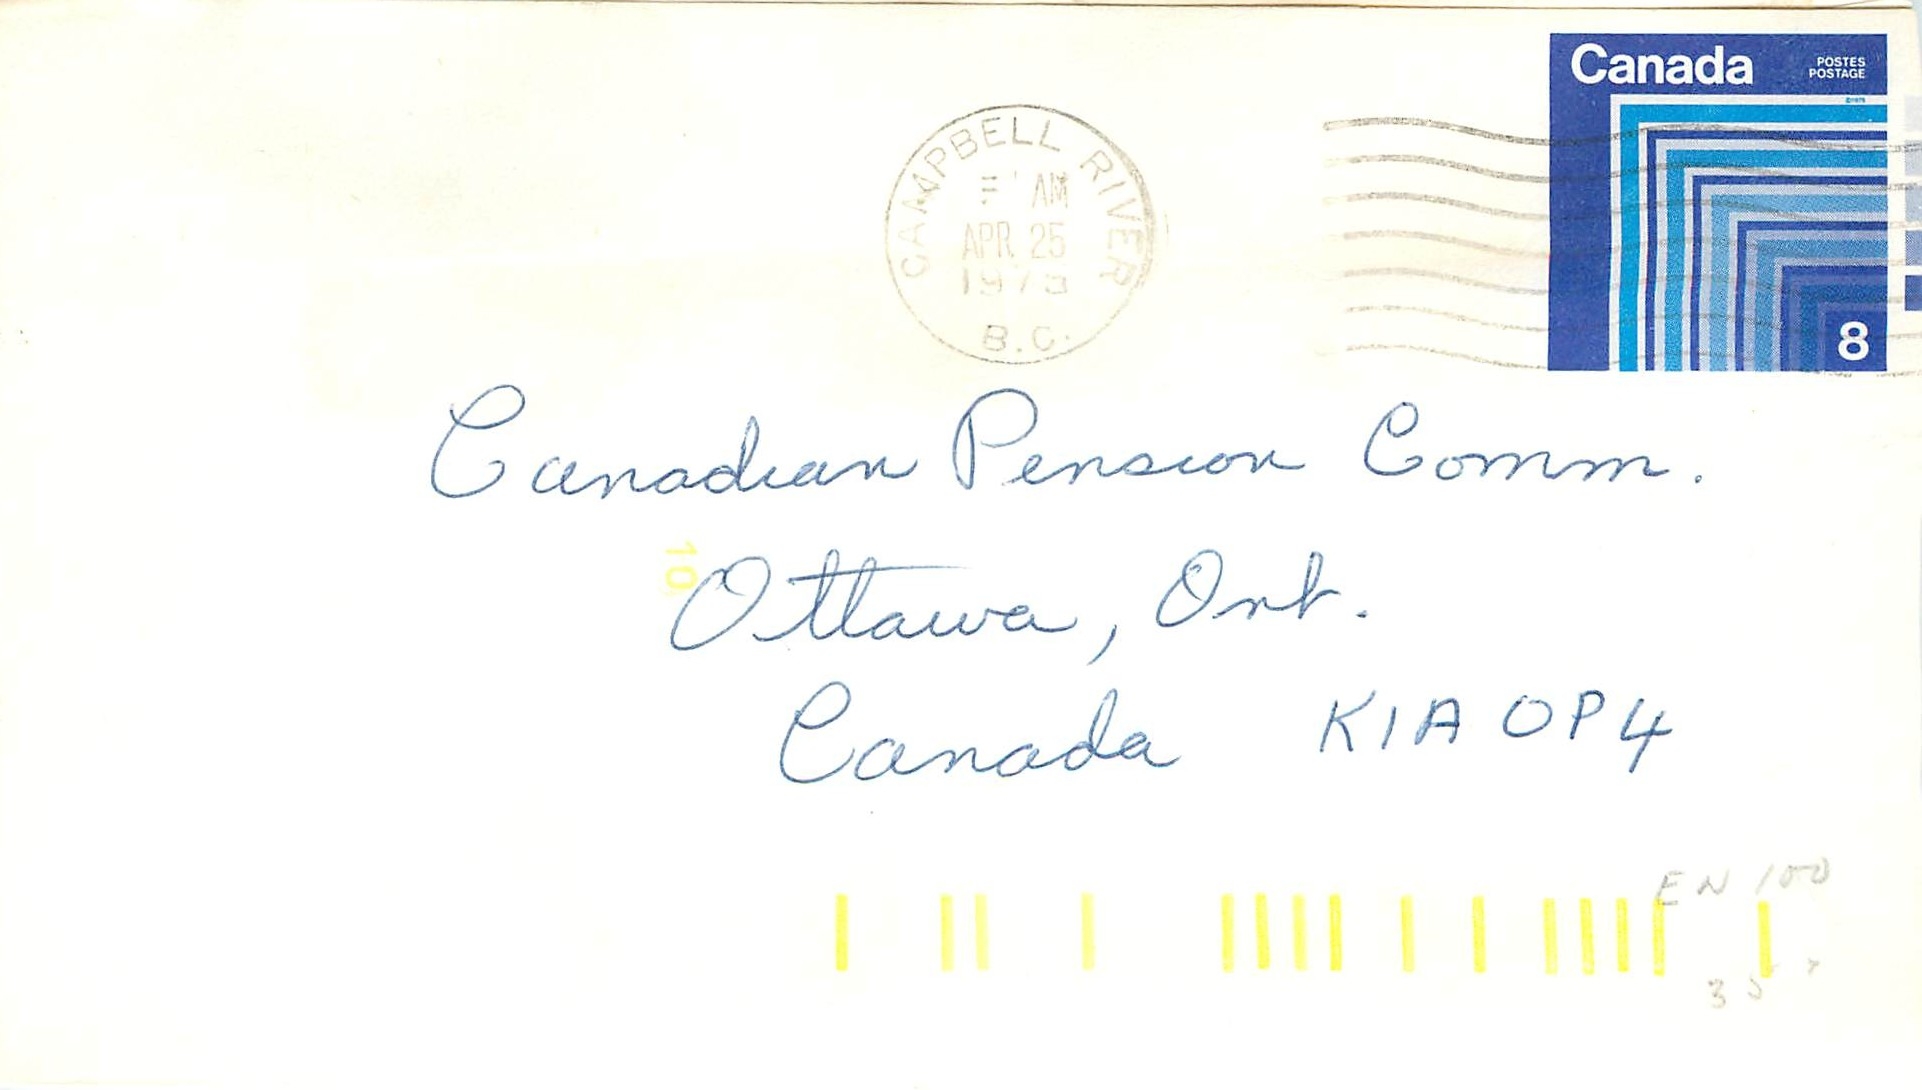 Canada
POSTES
POSTAGE
©1975
8
CAMPBELL RIVER
AM
APR 25
1975
B.C.
Canadian Pension Comm.
10
Ottawa, Ont.
Canada K1A 0P4
EN 100